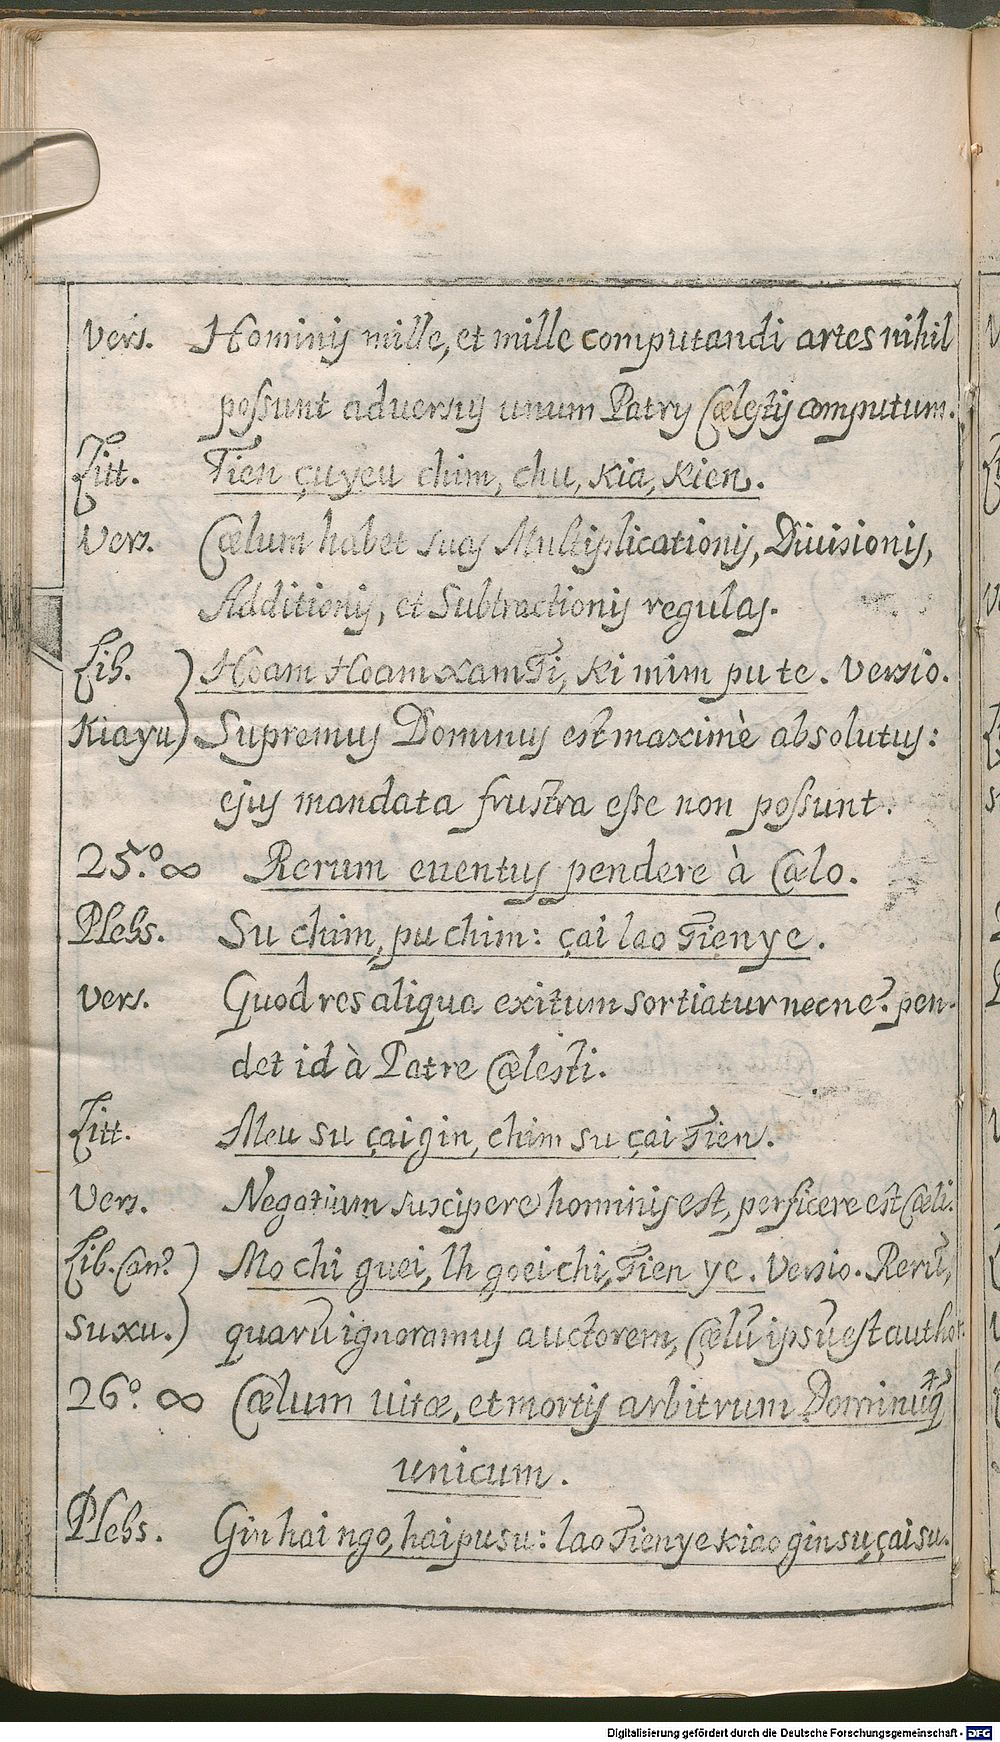 Vers. Hominis mille, et mille computandi artes nihil
possunt adversus unum Patris Cælestis computum.
Litt. Tien çu yeu chim, chu, Kia, Kien.
Vers. Cælum habet suas Multiplicationis, Divisionis,
Additionis, et Subtractionis regulas.
Lib. Hoam Hoam xam Ti, Ki mim pu te. Versio.
Kia yu) Supremus Dominus est maximè absolutus:
ejus mandata frustra esse non possunt.
25.º ∞ Rerum euentus pendere à Cælo.
Plebs. Su chim, pu chim: çai lao Tien ye.
Vers. Quod res aliqua exitum sortiatur necne? pen-
det id à Patre Cælesti.
Litt. Meu su çai gin, chim su çai Tien.
Vers. Negotium suscipere hominis est, perficere est Cæli.
Lib. Can.º Mo chi guei, lh goei chi, Tien ye. Versio. Rerū,
Su xu.) quarū ignoramus auctorem, Cælū ipsū est author.
26.º ∞ Cælum vitæ, et mortis arbitrum Dominūq̄
unicum.
Plebs. Gin hai ngo, hai pu su: lao Tien ye kiao gin su, çai su.
Digitalisierung gefördert durch die Deutsche Forschungsgemeinschaft - DFG